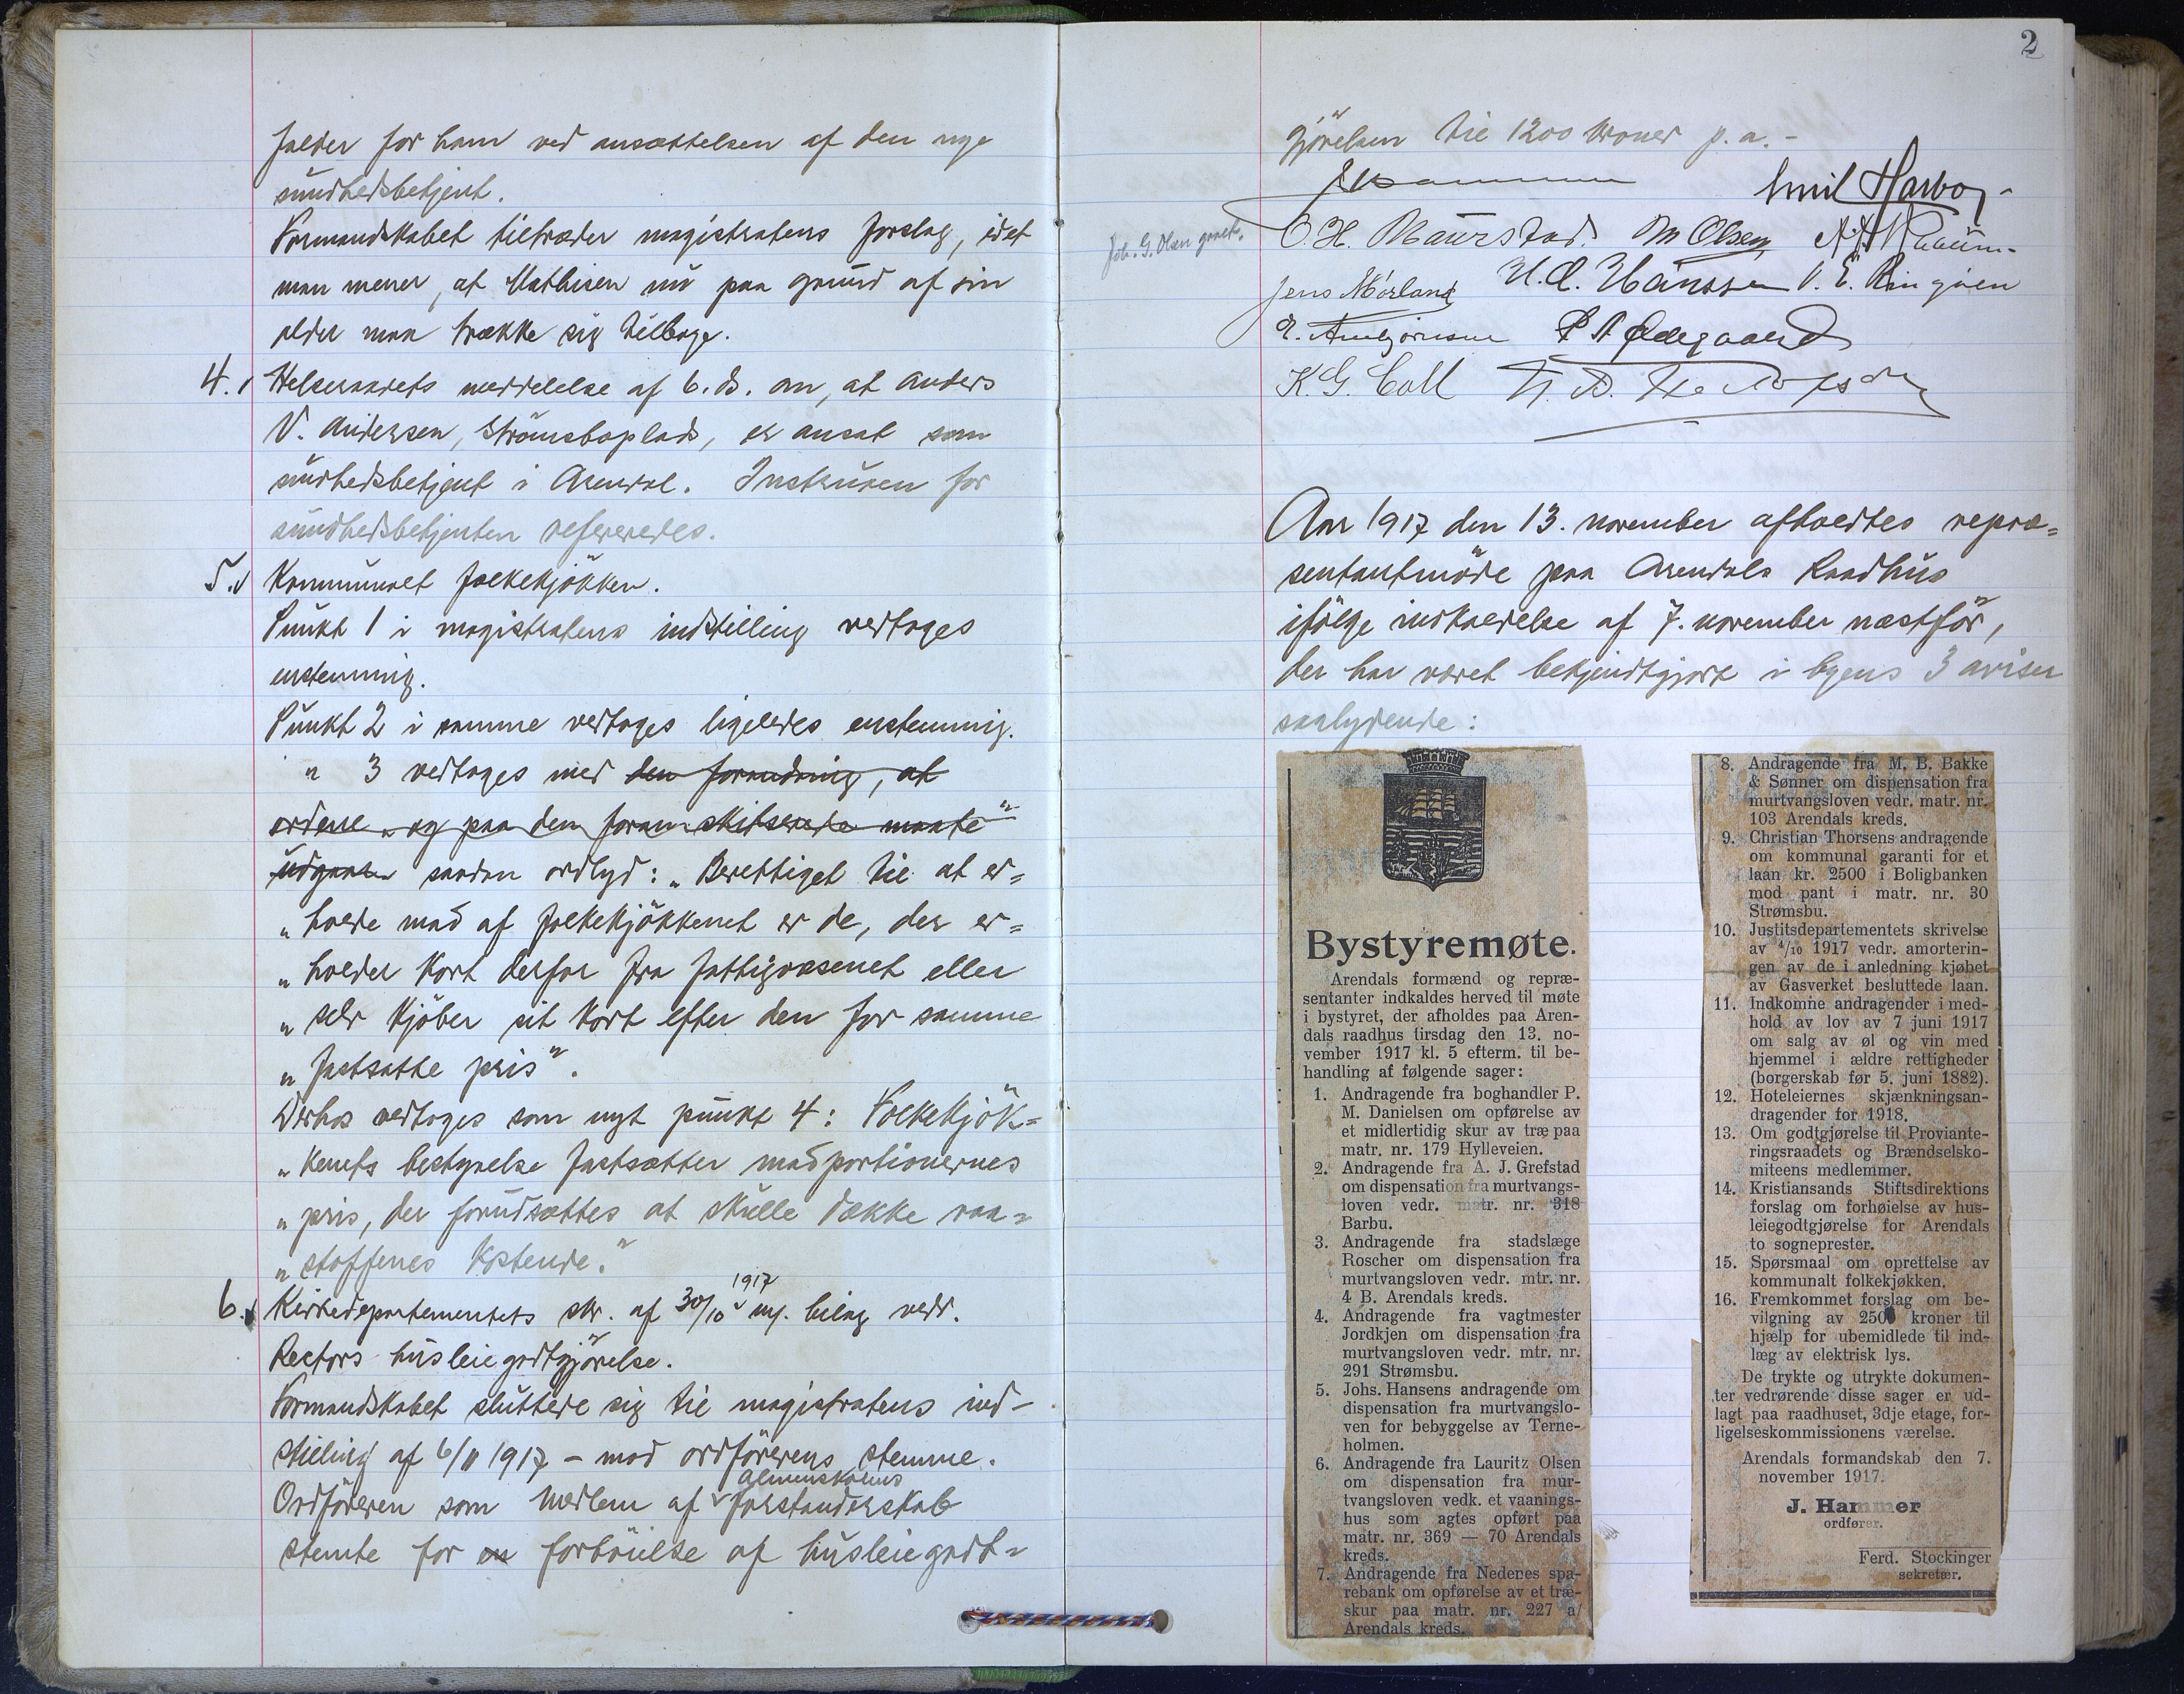 falder for ham ved ansættelsen af den nye
sundhedsbetjent.
Formandskabet tiltræder magistratens forslag, idet
man mener, at Mathisen nu paa grund af sin
alder maa trække sig tilbage.
4. Helseraadets meddelelse af 6. ds. om, at Anders
V. Andersen, Strömsboplads, er ansat som
sundhedsbetjent i Arendal. Instruxen for
sundhedsbetjenten refereredes.
5. Kommunalt folkekjökken.
Punkt 1 i magistratens indstilling vedtoges
enstemmig.
Punkt 2 i samme vedtoges ligeledes enstemmig.
" 3 vedtoges med den forandring, at
ordene „og paa den foran skitserede maate"
udgaar saadan ordlyd: „Berettiget til at er=
„holde mad af folkekjökkenet er de, der er=
„holder kort derfor fra fattigvæsenet eller
„selv kjöber sit kort efter den for samme
„fastsatte pris".
Derhos vedtoges som nyt punkt 4: Folkekjök=
„kenets bestyrelse fastsætter madportionernes
„pris, der forudsættes at skulle dække raa=
„stoffenes kostende."
6. Kirkedepartementets skr. af 30/10 1917 m. bilag vedr.
Rectors husleiegodtgjörelse.
Formandskabet sluttede sig til magistratens ind-
stilling af 6/11 1917 – mod ordförerens stemme.
Ordföreren som medlem af almenskolens forstanderskab
stemte for en forhöielse af husleiegodt=
2
gjörelsen til 1200 kroner p.a. –
J Hammer Emil Harboe
Joh. G. Olsen O. H. Maurstad. M Olsen
Jens Mörland H. C. Hanssen V. E. Ringöen
E. Arnbjörnsen P A Ödegaard
K. G. Coll
Aar 1917 den 13. november afholdtes repræ=
sentantmöde paa Arendals Raadhus
ifölge indkaldelse af 7. november næstför,
der har været bekjendtgjort i byens 3 aviser
saalydende:
Bystyremøte.
Arendals formænd og repræ-
sentanter indkaldes herved til møte
i bystyret, der afholdes paa Aren-
dals raadhus tirsdag den 13. no-
vember 1917 kl. 5 efterm. til be-
handling af følgende sager:
1. Andragende fra boghandler P.
M. Danielsen om opførelse av
et midlertidig skur av træ paa
matr. nr. 179 Hylleveien.
2. Andragende fra A. J. Grefstad
om dispensation fra murtvangs-
loven vedr. matr. nr. 318
Barbu.
3. Andragende fra stadslæge
Roscher om dispensation fra
murtvangsloven vedr. mtr. nr.
4 B. Arendals kreds.
4. Andragende fra vagtmester
Jordkjen om dispensation fra
murtvangsloven vedr. mtr. nr.
291 Strømsbu.
5. Johs. Hansens andragende om
dispensation fra murtvangslo-
ven for bebyggelse av Terne-
holmen.
6. Andragende fra Lauritz Olsen
om dispensation fra mur-
tvangsloven vedk. et vaanings-
hus som agtes opført paa
matr. nr. 369 — 70 Arendals
kreds.
7. Andragende fra Nedenes spa-
rebank om opførelse av et træ-
skur paa matr. nr. 227 a/
Arendals kreds.
8. Andragende fra M. B. Bakke
& Sønner om dispensation fra
murtvangsloven vedr. matr. nr.
103 Arendals kreds.
9. Christian Thorsens andragende
om kommunal garanti for et
laan kr. 2500 i Boligbanken
mod pant i matr. nr. 30
Strømsbu.
10. Justitsdepartementets skrivelse
av 4/10 1917 vedr. amorterin-
gen av de i anledning kjøbet
av Gasverket besluttede laan.
11. Indkomne andragender i med-
hold av lov av 7 juni 1917
om salg av øl og vin med
hjemmel i ældre rettigheder
(borgerskab før 5. juni 1882).
12. Hoteleiernes skjænkningsan-
dragender for 1918.
13. Om godtgjørelse til Proviante-
ringsraadets og Brændselsko-
miteens medlemmer.
14. Kristiansands Stiftsdirektions
forslag om forhøielse av hus-
leiegodtgjørelse for Arendals
to sogneprester.
15. Spørsmaal om oprettelse av
kommunalt folkekjøkken.
16. Fremkommet forslag om be-
vilgning av 2500 kroner til
hjælp for ubemidlede til ind-
læg av elektrisk lys.
De trykte og utrykte dokumen-
ter vedrørende disse sager er ud-
lagt paa raadhuset, 3dje etage, for-
ligelseskommissionens værelse.
Arendals formandskab den 7.
november 1917.
J. Hammer
ordfører.
Ferd. Stockinger
sekretær.